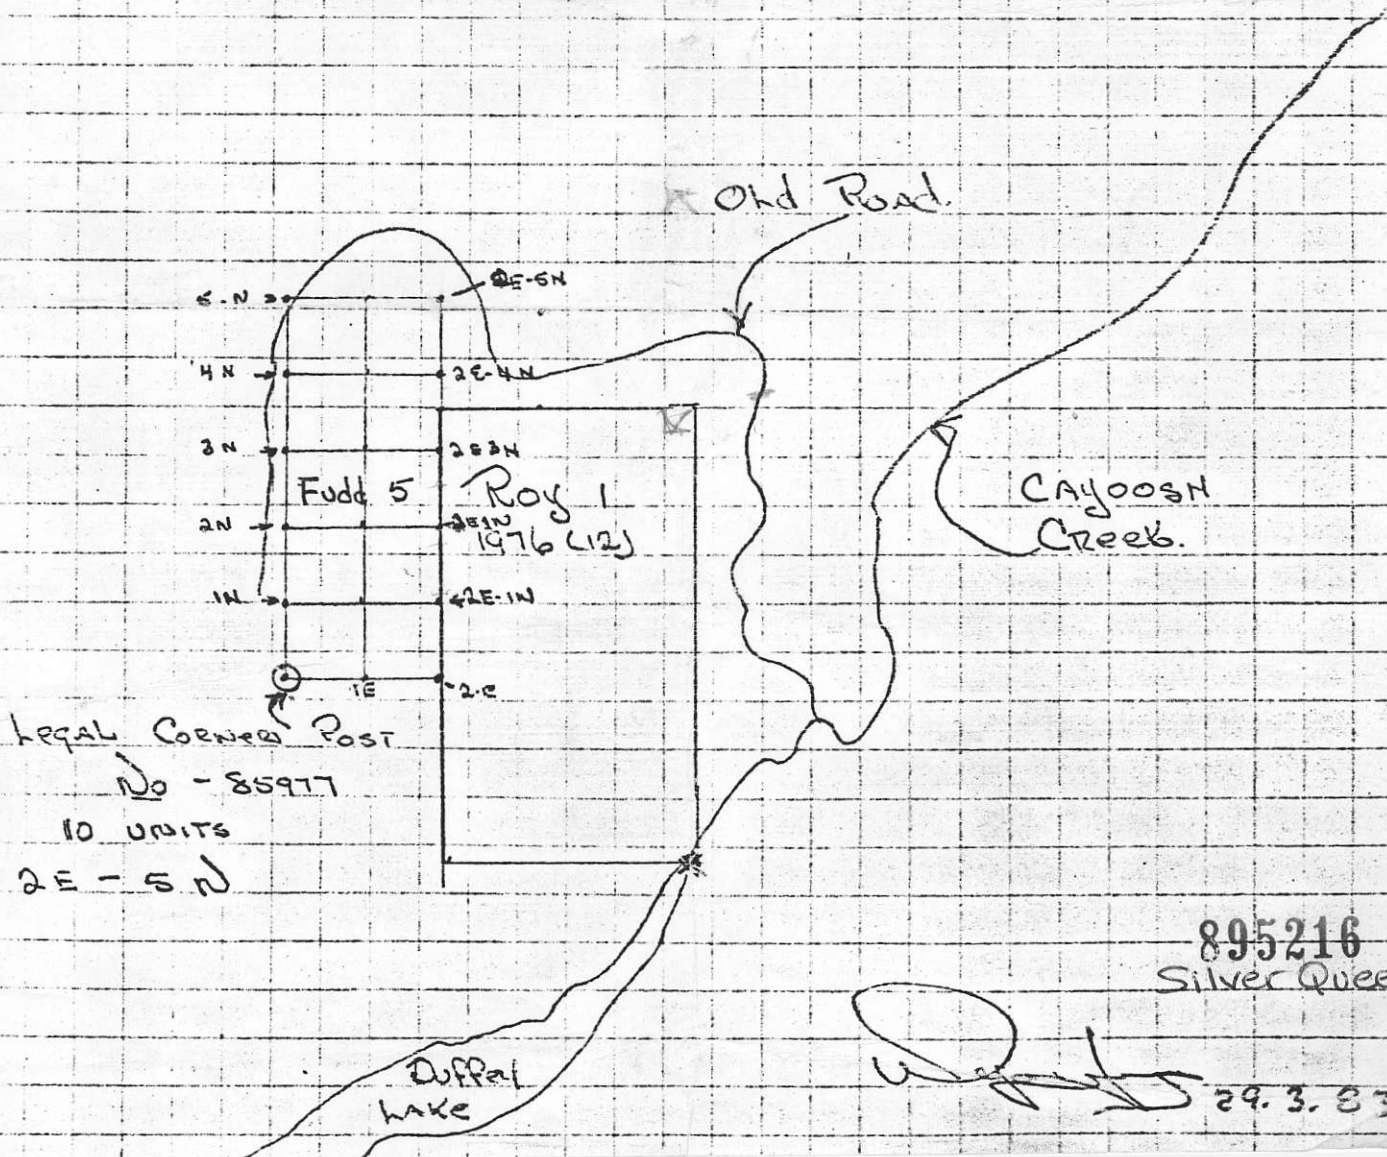 Old Road.
5-N
2E-5N
4N
2E-4N
3N
2E3N
Fudd 5
Roy 1
1976 (12)
2N
2E1N
1N
2E-1N
1E
2-E
CAYOOSH
CREEK.
LEGAL CORNER POST
No - 85977
10 UNITS
2E - 5N
895216
Silver Quee
29.3.83
Duffey
LAKE